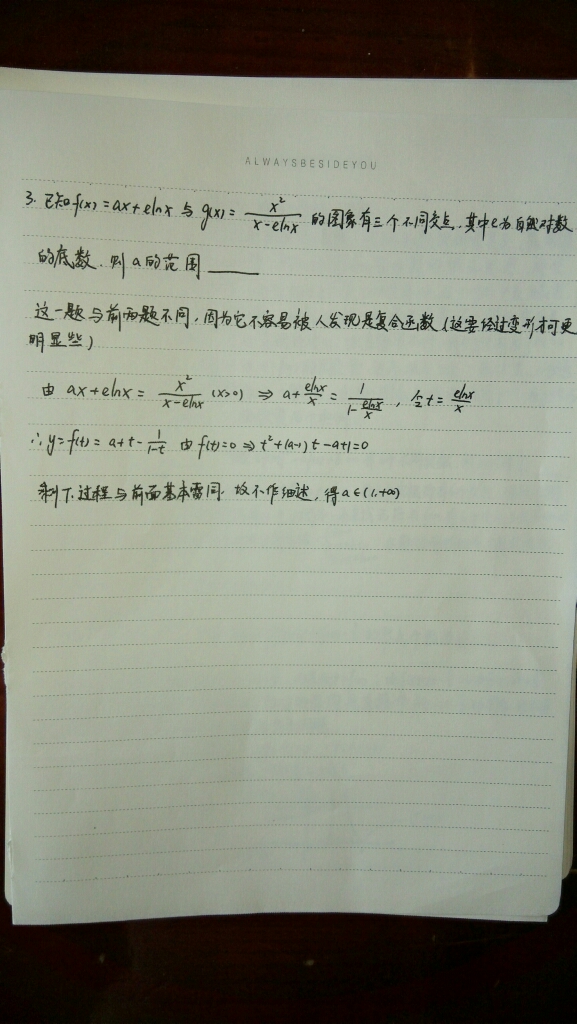 ALWAYSBESIDEYOU
3. 已知f(x)=ax+elnx 与 g(x)= x²/(x-elnx) 的图象有三个不同交点, 其中e为自然对数
的底数. 则a的范围____
这一题与前两题不同, 因为它不容易被人发现是复合函数 (这要经过变形才可更
明显些)
由 ax+elnx= x²/(x-elnx) (x>0) ⇒ a+elnx/x = 1/(1-elnx/x) , 令t=elnx/x
∴y=f(t)=a+t-1/(1-t) 由f(t)=0 ⇒ t²+(a-1)t-a+1=0
剩下过程与前面基本雷同. 故不作细述, 得a∈(1,+∞)